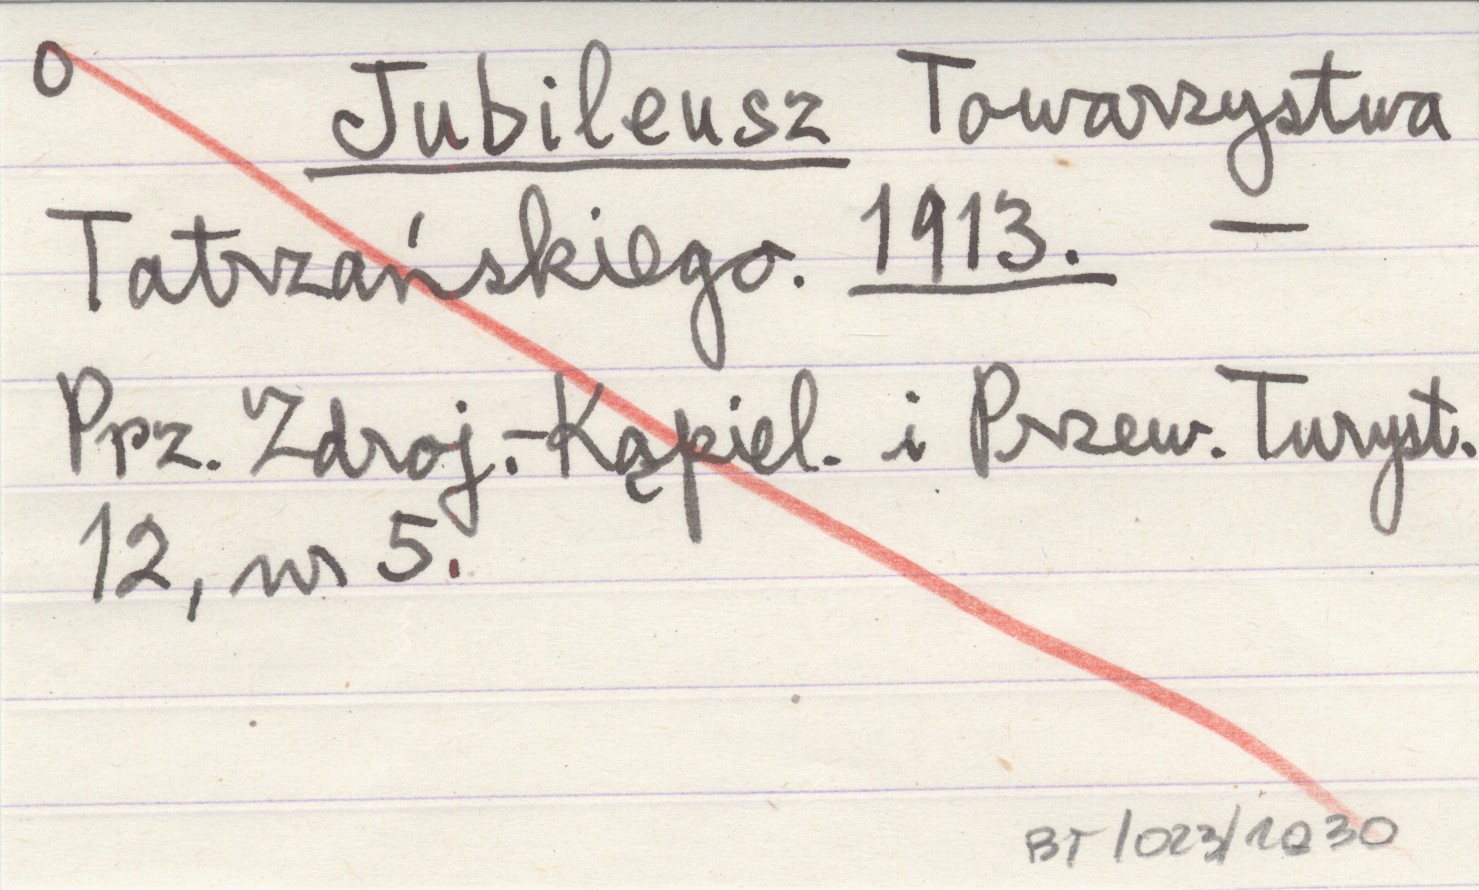 0 Jubileusz Towarzystwa
Tatrzańskiego. 1913. —
Ppz. Zdroj.-Kąpiel. i Przew. Turyst.
12, nr 5.
BT/023/1030